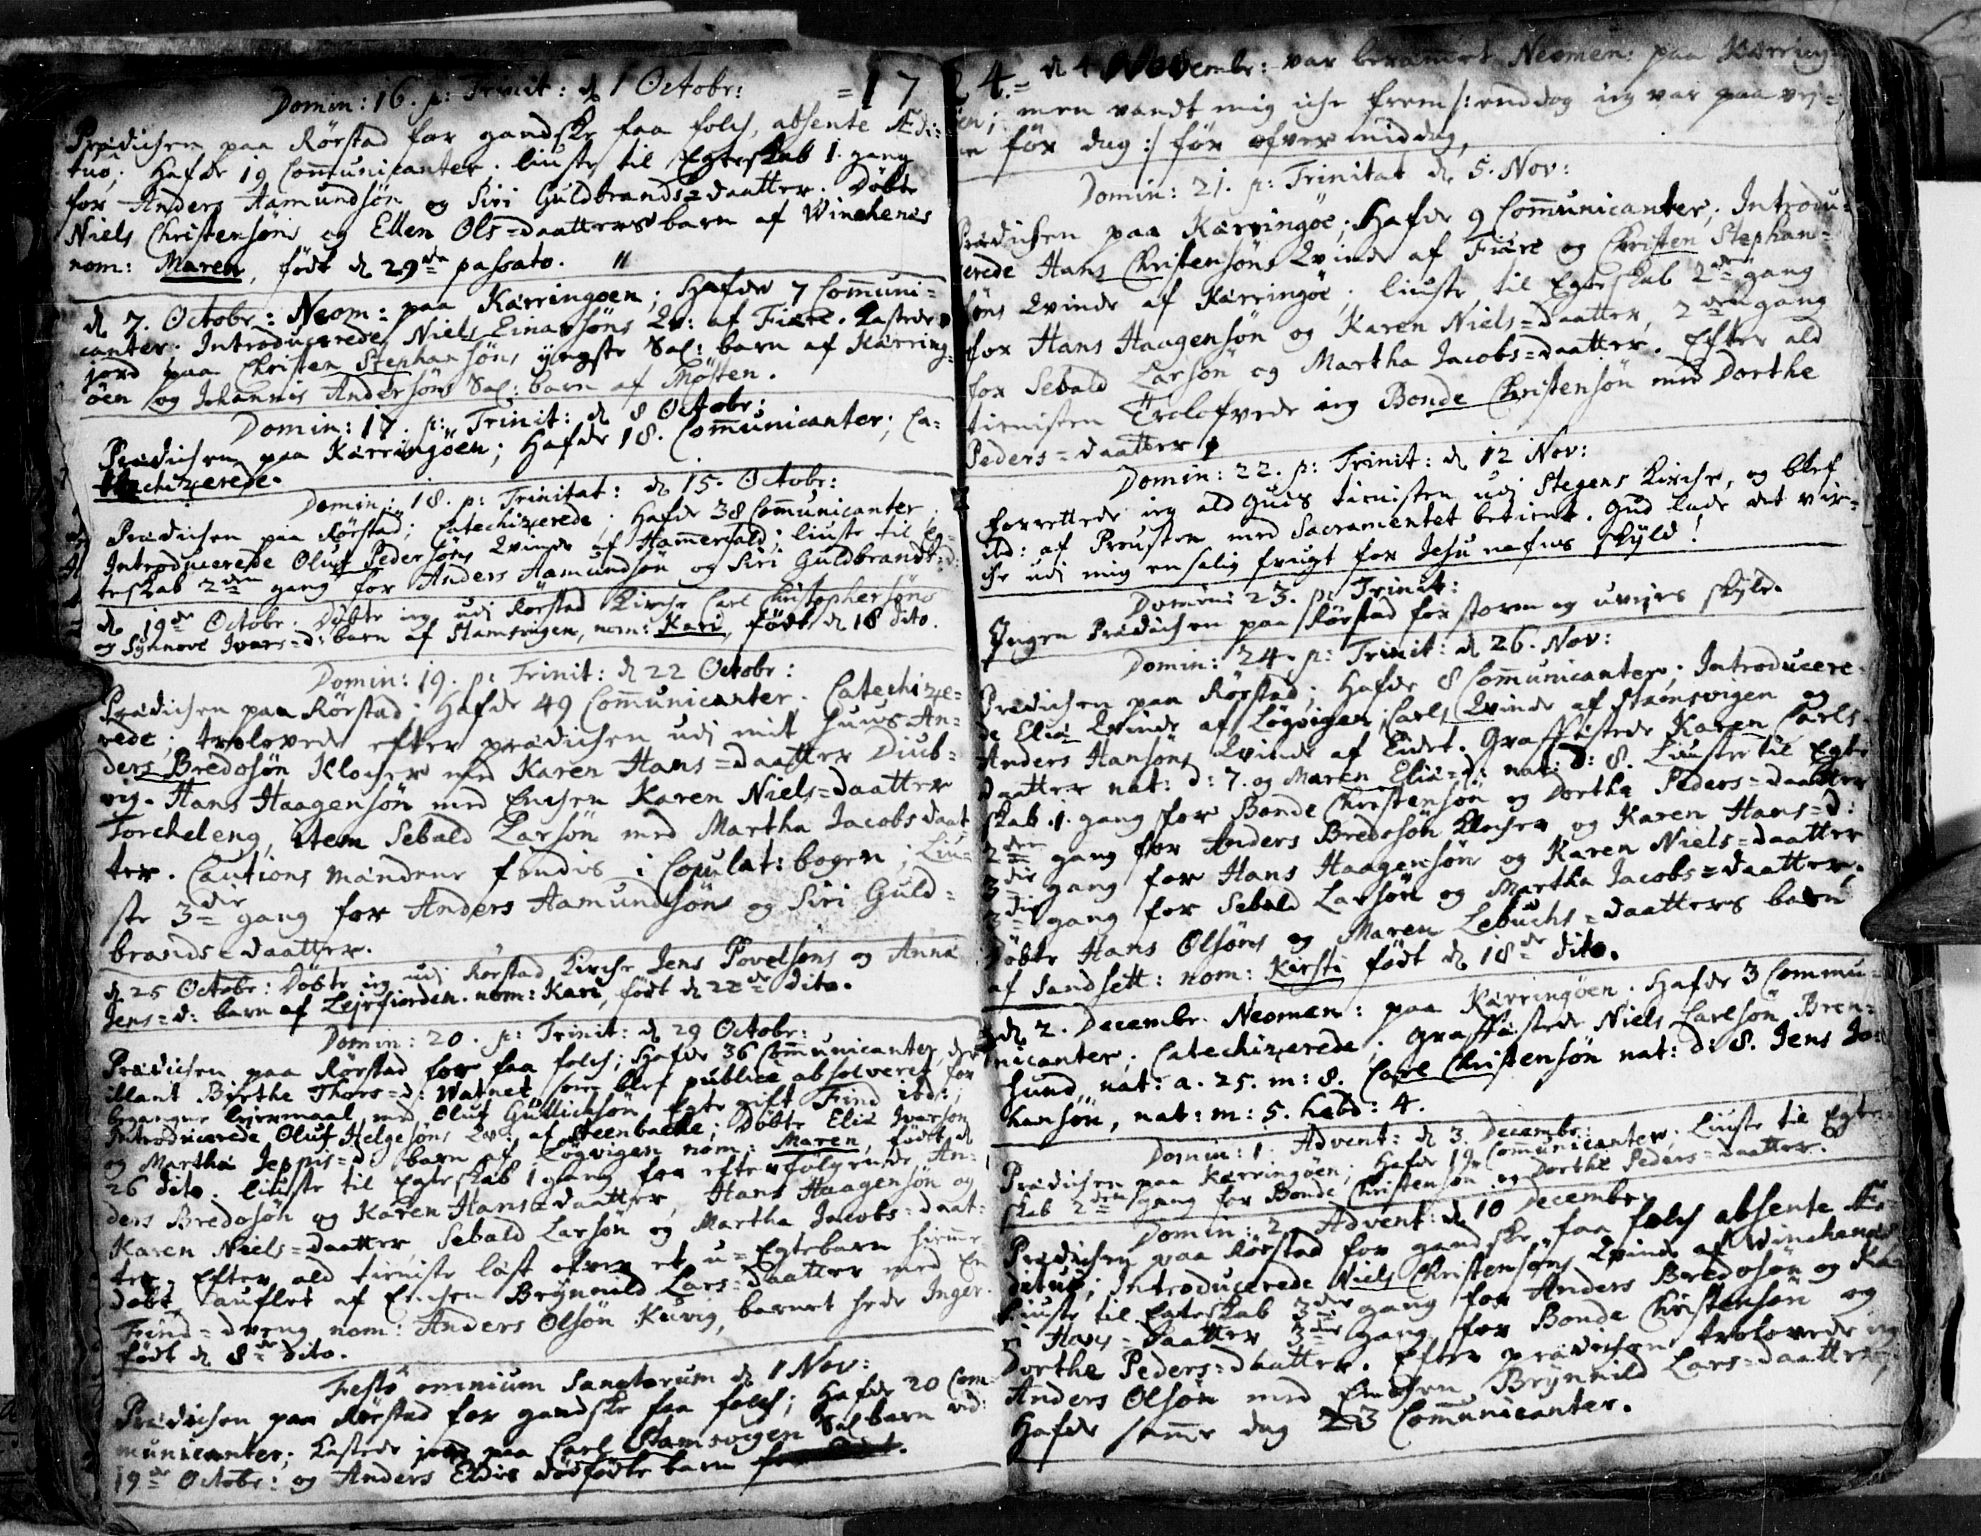 Domin: 16. p: Trinit: d. 1 Octobr: =17
Prædichen paa Rörstad for gandske faa folch, absente Ædi:
tuo; Hafde 19 Communicanter. liuste til Egteskab 1. gang
for Anders Aamundsön og Siri Guldbrands=daatter. Döbte
Niels Christensöns og Ellen Ols=daatters barn af Winchenes
nom: Maren, födt d. 29de passato.
d. 7. Octobr: Neom: paa Kærringöen; Hafde 7 Communi=
canter; Introducerede Niels Einarsöns Qv: af Fiære. Kastede
jord paa Christen Stephansöns yngste Sal: barn af Kærring=
öen og Johannis Andersöns Sal: barn af Mösten.
Domin: 17. p: Trinit: d. 8 Octobr:
Prædichen paa Kærringöen; Hafde 18. Communicanter; Ca=
techizerede.
Domin: 18. p: Trinitat: d. 15. Octobr:
Prædichen paa Rörstad; Catechizerede; Hafde 38 Communicanter;
Introducerede Oluf Pedersöns Qvinde af Hammerfald; liuste til Eg=
teskab 2den gang for Anders Aamundsön og Siri Guldbrands=d:
d. 19de Octobr. Döbte ieg udj Rörstad Kirche Carl Christophersöns
og Synnove Ivars=d: barn af Stamsvigen, nom: Kari, födt d. 18 dito.
Domin: 19. p: Trinit: d. 22 Octobr:
Prædichen paa Rörstad; Hafde 49 Communicanter. Catechize=
rede; trolovede efter prædichen udj mit huus An=
ders Bredosön Klocher med Karen Hans=daatter Diub=
vig. Hans Haagensön med Enchen Karen Niels=daatter
Torcheleng, item Sebald Larsön med Martha Jacobs daat
ter. Cautions mændene findis i Copulat: bogen; Liu=
ste 3die gang for Anders Aamundsön og Siri Guld=
brands=daatter.
d. 25 Octobr: Döbte ieg udj Rörstad Kirche Jens Povelsöns og Anna
Jens=d: barn af Lejrfiorden. nom: Kari, födt d. 22de dito.
Domin: 20. p: Trinit: d. 29 Octobr:
Prædichen paa Rörstad for faa folch; Hafde 36 Communicanter, der
iblant Birthe Thors=d: Watnet som blef publice absolveret for
begangne leiermaal med Oluf Gullichsön Egte gift Find ibd:;
Introducerede Oluf Helgesöns Qv: af Steenbacke; Döbte Elia Ivarsön
og Martha Jeppis=d: barn af Lögvigen nom: Maren, födt d.
26 dito. liuste til Egteskab 1 gang for efterfölgende An=
ders Bredosön og Karen Hans=daatter, Hans Haagensön og
Karen Niels=daatter, Sebald Larsön og Martha Jacobs=daat=
ter. Efter ald tieniste læst ofver et u=Egtebarn hiemme
döbt, auflet af Enchen Brÿnnild Lars=daatter med En
Find=dreng nom: Anders Olsön Kuvig, barnet hede Inger.
födt d. 8de dito.
Festo omnium Sanctorum d. 1 Nov:
Prædichen paa Rörstad for gandske faa folch; Hafde 20 Com=
municanter; Kastede jord paa Carl Stamsvigen Sal: barn vid:
19de Octobr: og Anders Eldies dödfödte barn
24.= d. 4 Novembr: var beramet Neomen: paa Kærring=
öen; men vandt mig iche frem /: enddog ieg var paa vej=
en för dag :/ för ofver middag.
Domin: 21. p: Trinitat d. 5. Nov:
Prædichen paa Kærringöe; Hafde 9 Communicanter; Introdu=
cerede Hans Christensöns Qvinde af Fiære og Christen Stephan=
söns Qvinde af Kærringöe; liuste til Egteskab 2den gang
for Hans Haagensön og Karen Niels=daatter, 2den gang
for Sebald Larsön og Martha Jacobs=daatter. Efter ald
tienisten Trolofvede ieg Bonde Christensön med Dorthe
Peders=daatter.
Domin: 22. p: Trinit: d. 12 Nov:
forrettede ieg ald Guds tienisten udj Stegens Kirche, og blef
ibd: af Prousten med Sacramentet betient. Gud lade det vir=
che udj mig en salig frugt for Jesu nafns skÿld!
Domin: 23. p: Trinit:
Ingen Prædichen paa Rörstad for storm og uvejrs skyld.
Domin: 24. p: Trinit: d. 26. Nov:
Prædichen paa Rörstad; Hafde 8 Communicanter; Introducere=
de Eliæ Qvinde af Lögvigen; Carls Qvinde af Stamsvigen og
Anders Hansöns Qvinde af Eidet. Graffæstede Karen Carls=
daatter nat: d: 7. og Maren Eliæ=d: nat: d: 8. Liuste til Egte
skab 1. gang for Bonde Christensön og Dorthe Peders=daatter
2den gang for Anders Bredosön Klocher og Karen Hans=d:
3die gang for Hans Haagensön og Karen Niels=daatter
3die gang for Sebald Larsön og Martha Jacobs=daatter;
Döbte Hans Olsöns og Maren Lebuchs=daatters barn
af Sandsett: nom: Kirsti födt d. 18de dito.
d. 2. Decembr. Neomen: paa Kærringöen. Hafde 3 Commu=
nicanter; Catechizerede; graffæstede Niels Carlsön Bren=
sund, nat: a. 25. m: 8. Carl Christensön nat: d: 8. Jens Jo=
hansön, nat: m: 5. hebd: 4.
Domin: 1. Advent: d. 3. Decembr:
Prædichen paa Kærringöen; Hafde 19 Communicanter; Liuste til Egte=
skab 2den gang for Bonde Christensön og Dorthe Peders=daatter.
Domin: 2. Advent: d. 10 Decembr:
Prædichen paa Rörstad for gandske faa folch absente Æ=
dituo; Introducerede Niels Christensöns Qvinde af Winchenes
Liuste til Egteskab 3die gang for Anders Bredosön og Ka=
r: Hans=daatter 3die gang for Bonde Christensön og
Dorthe Peders=daatter. Efter prædichen trolovede ieg
Anders Olsön med Enchen Brÿnnild Lars=daatter;
Hafde samme dag 23 Communicanter.